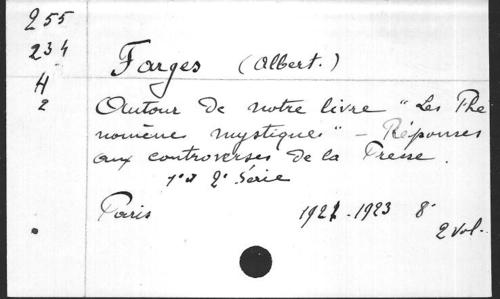 255
234
H
2
Farges (Albert.)
Autour de notre livre "Les Phe
nomènes mystiques" - Réponses
aux controverses de la Presse.
1e et 2e Série
Paris 1921-1923 8°
2 vol.